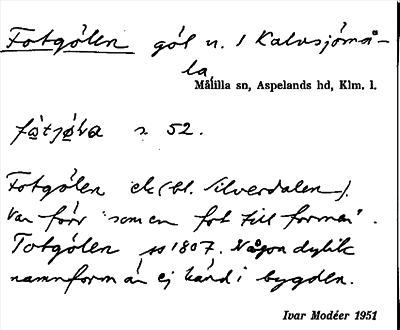 Fotgölen göl n. l Kalvsjömå-
la,
Målilla sn, Aspelands hd, Klm. l.
fo̱tjø̱ḷa s. 52.
Fotgölen ek (bl. Silverdalen).
Var förr "som en fot till formen".
Totgölen js 1807. Någon dylik
namnform är ej känd i bygden.
Ivar Modéer 1951